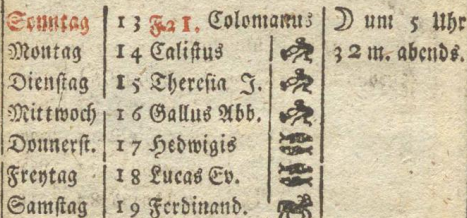 Sonntag 13 F21. Colomanus ☽ um 5 Uhr
Montag 14 Calistus 32 m. abends.
Dienstag 15 Theresia J.
Mittwoch 16 Gallus Abb.
Donnerst. 17 Hedwigis
Freytag 18 Lucas Ev.
Samstag 19 Ferdinand.